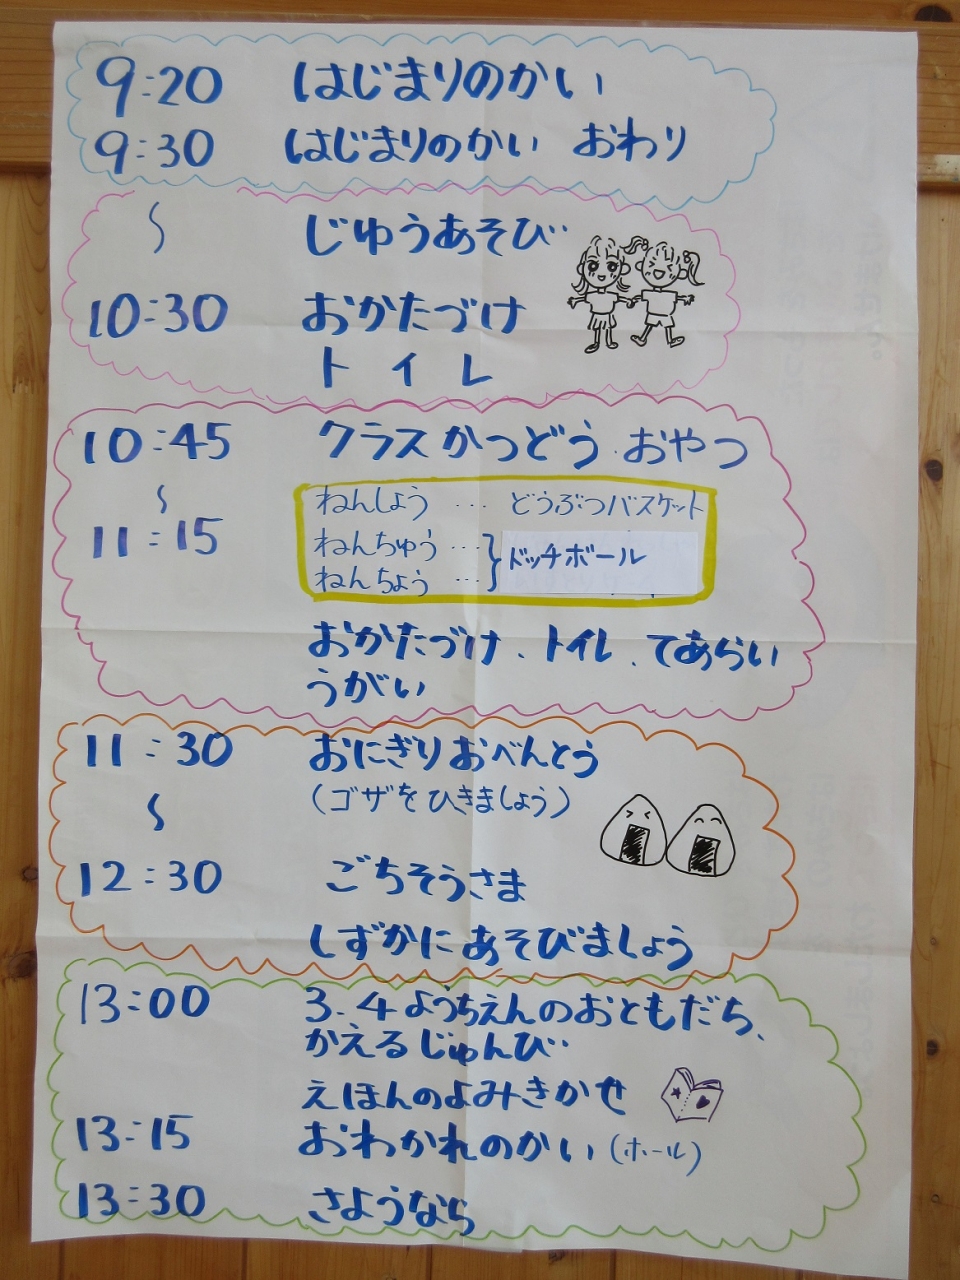 9:20 はじまりのかい
9:30 はじまりのかい おわり
〜 じゆうあそび
10:30 おかたづけ
トイレ
10:45 クラスかつどう おやつ
〜
ねんしょう … どうぶつバスケット
11:15
ねんちゅう … } ドッチボール
ねんちょう …
おかたづけ、トイレ、てあらい
うがい
11:30 おにぎりおべんとう
〜 (ゴザをひきましょう)
12:30 ごちそうさま
しずかにあそびましょう
13:00 3.4ようちえんのおともだち、
かえるじゅんび
えほんのよみきかせ
13:15 おわかれのかい(ホール)
13:30 さようなら